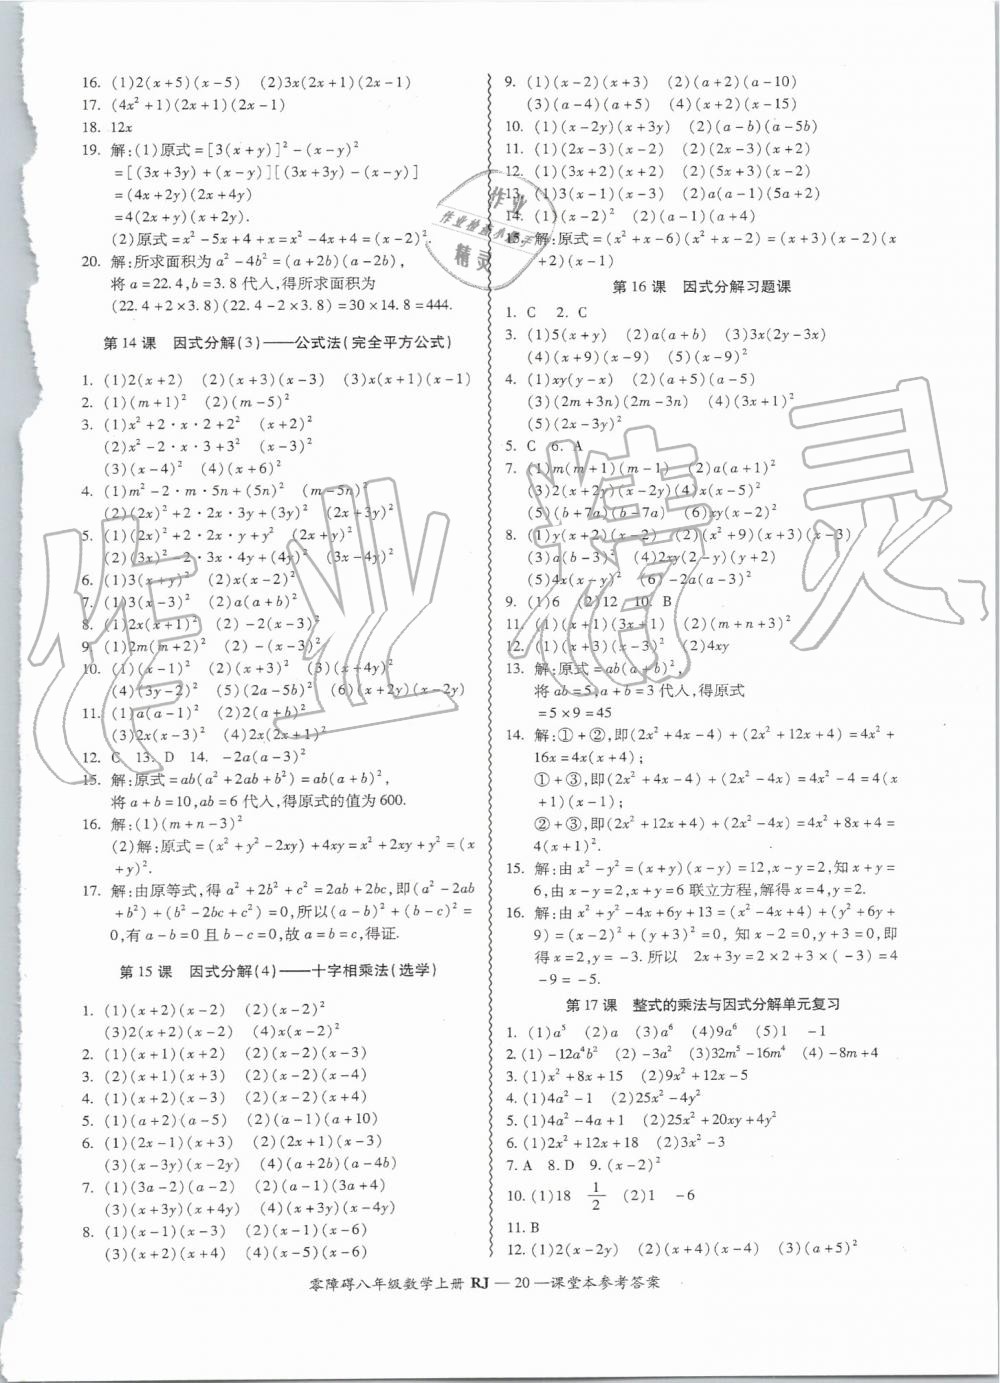 16. (1)2(x+5)(x-5)  (2)3x(2x+1)(2x-1)
17. (4x²+1)(2x+1)(2x-1)
18. 12x
19. 解:(1)原式=[3(x+y)]²-(x-y)²
=[(3x+3y)+(x-y)][(3x+3y)-(x-y)]
=(4x+2y)(2x+4y)
=4(2x+y)(x+2y).
(2)原式=x²-5x+4+x=x²-4x+4=(x-2)².
20. 解:所求面积为a²-4b²=(a+2b)(a-2b),
将a=22.4,b=3.8代入,得所求面积为
(22.4+2×3.8)(22.4-2×3.8)=30×14.8=444.
第14课 因式分解(3)——公式法(完全平方公式)
1. (1)2(x+2)  (2)(x+3)(x-3)  (3)x(x+1)(x-1)
2. (1)(m+1)²  (2)(m-5)²
3. (1)x²+2·x·2+2²  (x+2)²
(2)x²-2·x·3+3²  (x-3)²
(3)(x-4)²  (4)(x+6)²
4. (1)m²-2·m·5n+(5n)²  (m-5n)²
(2)(2x)²+2·2x·3y+(3y)²  (2x+3y)²
5. (1)(2x)²+2·2x·y+y²  (2x+y)²
(2)(3x)²-2·3x·4y+(4y)²  (3x-4y)²
6. (1)3(x+y)²  (2)x(x-2)²
7. (1)3(x-3)²  (2)a(a+b)²
8. (1)2x(x+1)²  (2)-2(x-3)²
9. (1)2m(m+2)²  (2)-(x-3)²
10. (1)(x-1)²  (2)(x+3)²  (3)(x+4y)²
(4)(3y-2)²  (5)(2a-5b)²  (6)(x+2y)(x-2y)
11. (1)a(a-1)²  (2)2(a+b)²
(3)2x(x-3)²  (4)2x(2x+1)²
12. C  13. D  14. -2a(a-3)²
15. 解:原式=ab(a²+2ab+b²)=ab(a+b)²,
将a+b=10,ab=6代入,得原式的值为600.
16. 解:(1)(m+n-3)²
(2)解:原式=(x²+y²-2xy)+4xy=x²+2xy+y²=(x
+y)².
17. 解:由原等式,得a²+2b²+c²=2ab+2bc,即(a²-2ab
+b²)+(b²-2bc+c²)=0,所以(a-b)²+(b-c)²=
0,有a-b=0且b-c=0,故a=b=c,得证.
第15课 因式分解(4)——十字相乘法(选学)
1. (1)(x+2)(x-2)  (2)(x-2)²
(3)2(x+2)(x-2)  (4)x(x-2)²
2. (1)(x+1)(x+2)  (2)(x-2)(x-3)
3. (2)(x+1)(x+3)  (2)(x-2)(x-4)
4. (1)(x+2)(x-3)  (2)(x-2)(x+4)
5. (1)(a+2)(a-5)  (2)(a-1)(a+10)
6. (1)(2x-1)(x+3)  (2)(2x+1)(x-3)
(3)(x-3y)(x-2y)  (4)(a+2b)(a-4b)
7. (1)(3a-2)(a-2)  (2)(a-1)(3a+4)
(3)(x+3y)(x+4y)  (4)(x+3y)(x-4y)
8. (1)(x-1)(x-3)  (2)(x-1)(x-6)
(3)(x+2)(x+4)  (4)(x-5)(x-6)
9. (1)(x-2)(x+3)  (2)(a+2)(a-10)
(3)(a-4)(a+5)  (4)(x+2)(x-15)
10. (1)(x-2y)(x+3y)  (2)(a-b)(a-5b)
11. (1)(2x-3)(x-2)  (2)(2x-3)(x+2)
12. (1)(3x+2)(x+2)  (2)(5x+3)(x-2)
13. (1)3(x-1)(x-3)  (2)a(a-1)(5a+2)
14. (1)(x-2)²  (2)(a-1)(a+4)
15. 解:原式=(x²+x-6)(x²+x-2)=(x+3)(x-2)(x
+2)(x-1)
第16课 因式分解习题课
1. C  2. C
3. (1)5(x+y)  (2)a(a+b)  (3)3x(2y-3x)
(4)(x+9)(x-9)  (5)(x-9)²
4. (1)xy(y-x)  (2)(a+5)(a-5)
(3)(2m+3n)(2m-3n)  (4)(3x+1)²
(5)(2x-3y)²
5. C  6. A
7. (1)m(m+1)(m-1)  (2)a(a+1)²
(3)2(x+2y)(x-2y)(4)x(x-5)²
(5)(b+7a)(b-7a)  (6)xy(x-2)²
8. (1)y(x+2)(x-2)  (2)(x²+9)(x+3)(x-3)
(3)a(b-3)²  (4)2xy(2-y)(y+2)
(5)4x(x-y)²  (6)-2a(a-3)²
9. (1)6  (2)12  10. B
11. (1)(x+1)(3x+1)  (2)(m+n+3)²
12. (1)(x+3)(x-3)²  (2)4xy
13. 解:原式=ab(a+b)²,
将ab=5,a+b=3代入,得原式
=5×9=45
14. 解:①+②,即(2x²+4x-4)+(2x²+12x+4)=4x²+
16x=4x(x+4);
①+③,即(2x²+4x-4)+(2x²-4x)=4x²-4=4(x
+1)(x-1);
②+③,即(2x²+12x+4)+(2x²-4x)=4x²+8x+4=
4(x+1)².
15. 解:由x²-y²=(x+y)(x-y)=12,x-y=2,知x+y=
6,由x-y=2,x+y=6联立方程,解得x=4,y=2.
16. 解:由x²+y²-4x+6y+13=(x²-4x+4)+(y²+6y+
9)=(x-2)²+(y+3)²=0,知x-2=0,y+3=0,即
得x=2,y=-3.所以 2x+3y=2×2+3×(-3)
=-5.
第17课 整式的乘法与因式分解单元复习
1. (1)a⁵  (2)a  (3)a⁶  (4)9a⁶  (5)1  -1
2. (1)-12a⁴b²  (2)-3a²  (3)32m⁵-16m⁴  (4)-8m+4
3. (1)x²+8x+15  (2)9x²+12x-5
4. (1)4a²-1  (2)25x²-4y²
5. (1)4a²-4a+1  (2)25x²+20xy+4y²
6. (1)2x²+12x+18  (2)3x²-3
7. A  8. D  9. (x-2)²
10. (1)18  1/2  (2)1  -6
11. B
12. (1)2(x-2y)  (2)(x+4)(x-4)  (3)(a+5)²
零障碍八年级数学上册 RJ — 20 —课堂本参考答案
作业精灵